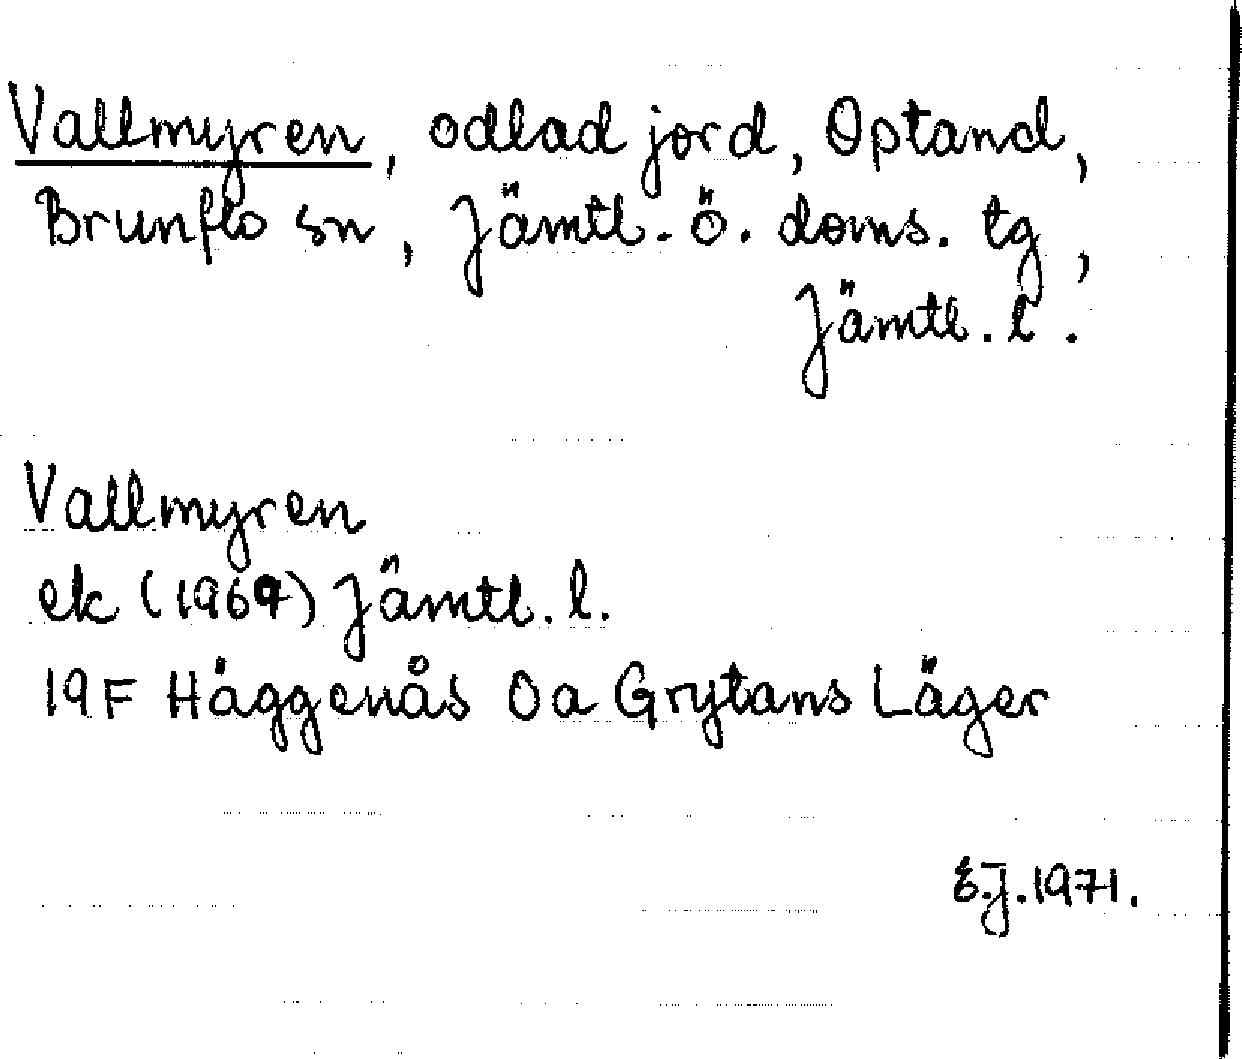 Vallmyren, odlad jord, Optand,
Brunflo sn, Jämtl. ö. doms. tg,
Jämtl. l.
Vallmyren
ek (1969) Jämtl. l.
19F Häggenås 0a Grytans Läger
E.J. 1971.